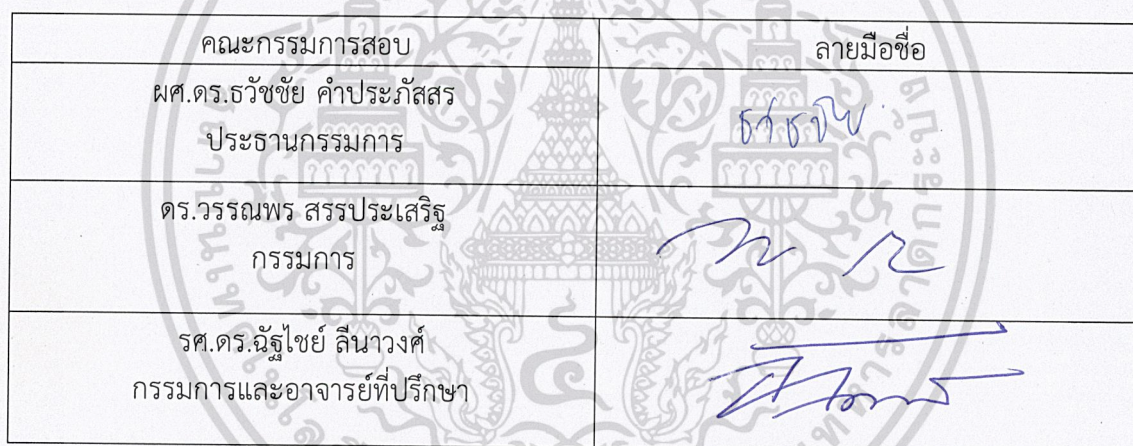 คณะกรรมการสอบ
ลายมือชื่อ
ผศ.ดร.ธวัชชัย คำประภัสสร
ประธานกรรมการ
ธวัชชัย
ดร.วรรณพร สรรประเสริฐ
กรรมการ
รศ.ดร.ฉัฐไชย์ ลีนาวงศ์
กรรมการและอาจารย์ที่ปรึกษา